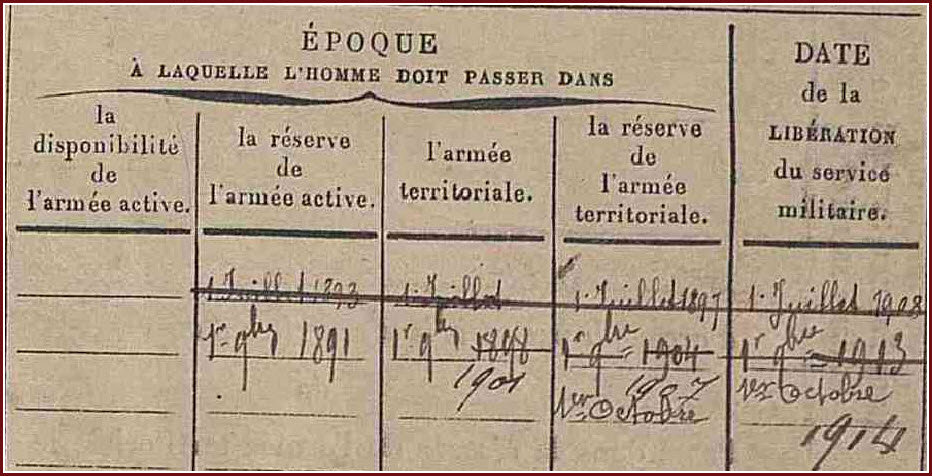 ÉPOQUE
À LAQUELLE L'HOMME DOIT PASSER DANS
la
disponibilité
de
l'armée active.
la réserve
de
l'armée active.
l'armée
territoriale.
la réserve
de
l'armée
territoriale.
DATE
de la
LIBÉRATION
du service
militaire.
1. Juillet 1893
1. Juillet
1. Juillet 1897
1. Juillet 1908
1er 9bre 1891
1er 9bre 1898
1901
1er 9bre 1904
1907
1er Octobre
1er 9bre 1913
1er Octobre
1914